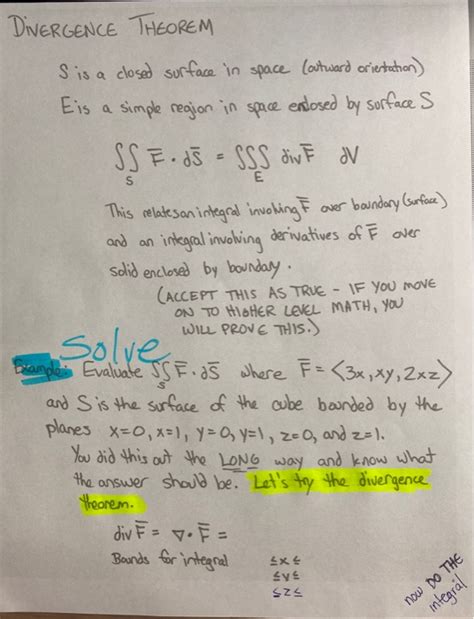 DIVERGENCE THEOREM
S is a closed surface in space (outward orientation)
E is a simple region in space enclosed by surface S
∬_S F̅ · dS̅ = ∭_E div F̅ dV
This relates an integral involving F̅ over boundary (surface)
and an integral involving derivatives of F̅ over
solid enclosed by boundary.
(ACCEPT THIS AS TRUE - IF YOU MOVE
ON TO HIGHER LEVEL MATH, YOU
WILL PROVE THIS.)
Solve
Example: Evaluate ∬_S F̅ · dS̅ where F̅ = <3x, xy, 2xz>
and S is the surface of the cube bounded by the
planes x=0, x=1, y=0, y=1, z=0, and z=1.
You did this out the LONG way and know what
the answer should be. Let's try the divergence
theorem.
div F̅ = ∇ · F̅ =
Bounds for integral ≤x≤
≤y≤
≤z≤
now DO THE
integral